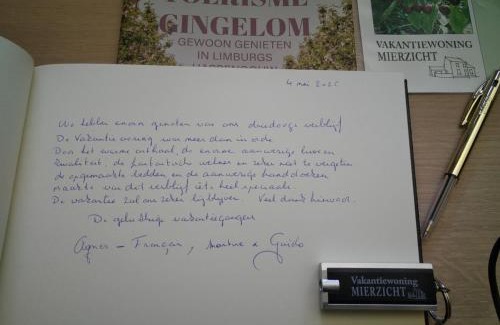 TOERISME
GINGELOM
GEWOON GENIETEN
IN LIMBURGS
HASPENGOUW
VAKANTIEWONING
MIERZICHT
4 mei
We hebben enorm genoten van ons driedaags verblijf
De vakantiewoning was meer dan in orde
Door het warme onthaal, de enorme aanwezige luxe en
kwaliteit, de fantastische welness en zeker niet te vergeten
de opgemaakte bedden en de aanwezige handdoeken
maakte van dit verblijf iets heel speciaals.
De vakantie zal ons zeker bijblijven. Veel dank hiervoor.
De gelukkige vakantiegangers
Agnes - François, Martine & Guido
Vakantiewoning
MIERZICHT